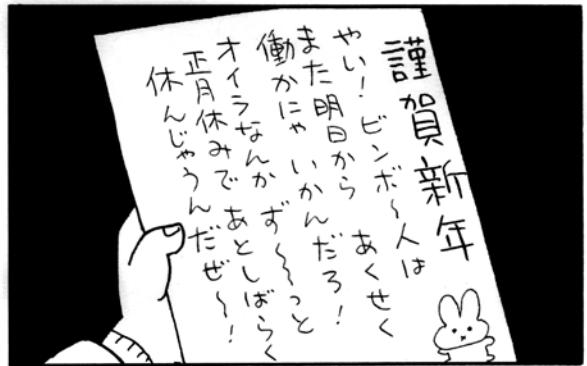 謹賀新年
やい！ビンボ〜人は
また明日から　あくせく
働かにゃ　いかんだろ！
オイラなんか　ず〜〜っと
正月休みで　あとしばらく
休んじゃうんだぜ〜！